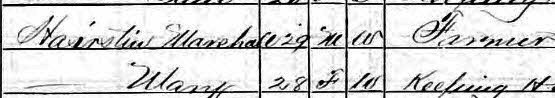 Hairstin Marshal 29 M W Farmer
— Mary 28 F W Keeping H